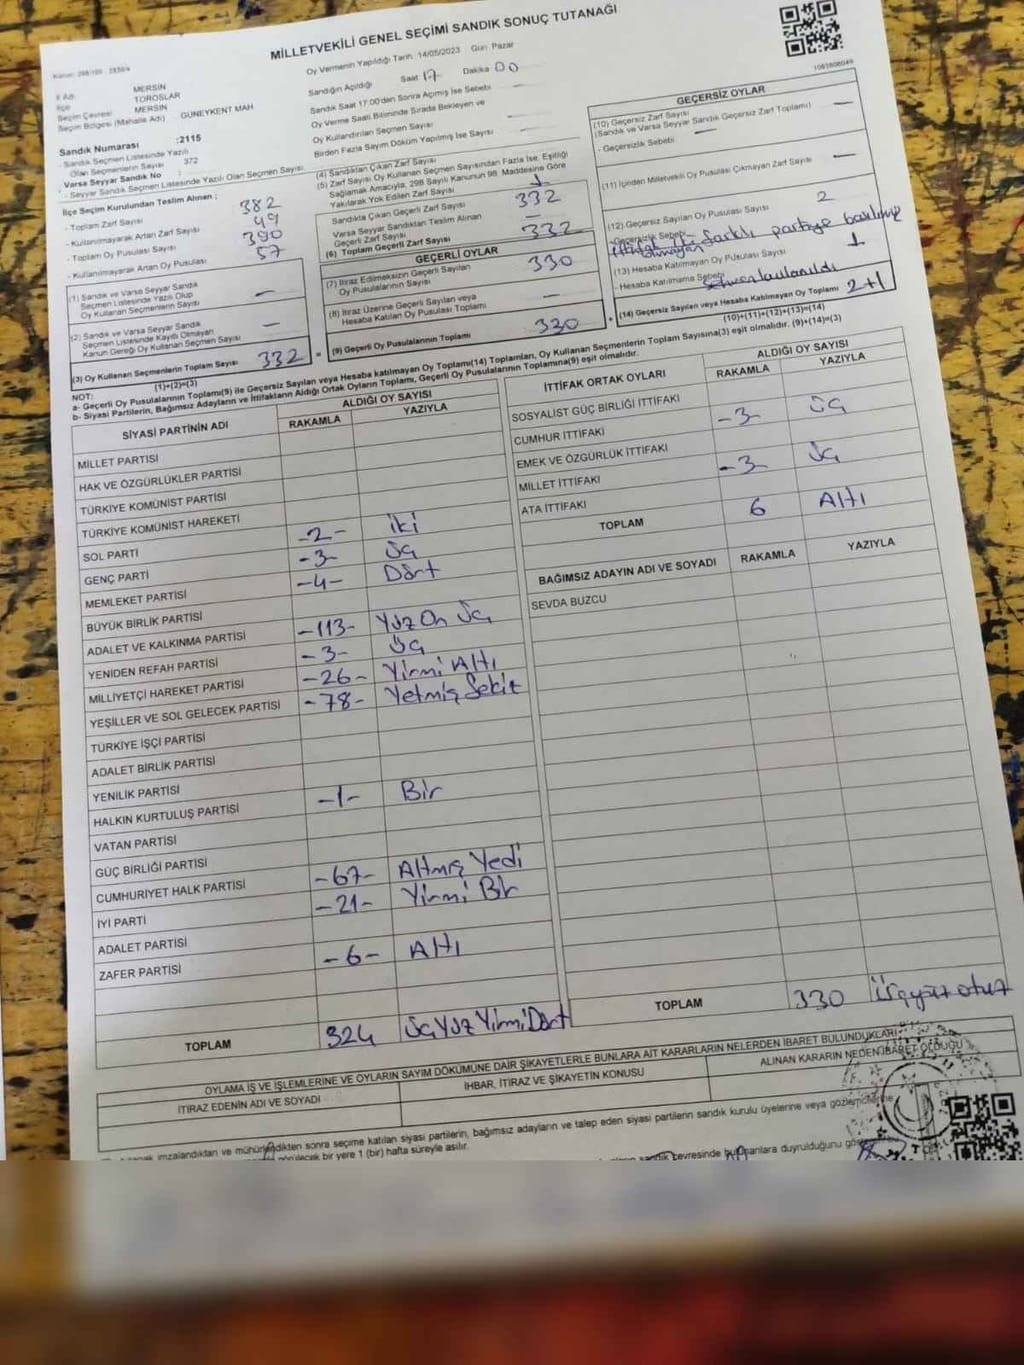 MİLLETVEKİLİ GENEL SEÇİMİ SANDIK SONUÇ TUTANAĞI
Oy Vermenin Yapıldığı Tarih: 14/05/2023 Gün: Pazar
Sandığın Açıldığı Saat 17 Dakika 00
Sandık Saat 17:00'den Sonra Açılmış İse Sebebi
Oy Verme Saati Bitiminde Sırada Bekleyen ve
Oy Kullandırılan Seçmen Sayısı
Birden Fazla Sayım Döküm Yapılmış İse Sayısı
İl Adı MERSİN
İlçe TOROSLAR
Seçim Çevresi MERSİN
Seçim Bölgesi (Mahalle Adı) GÜNEYKENT MAH
Sandık Numarası :2115
- Sandık Seçmen Listesinde Yazılı
Olan Seçmenlerin Sayısı : 372
Varsa Seyyar Sandık No :
- Seyyar Sandık Seçmen Listesinde Yazılı Olan Seçmen Sayısı
İlçe Seçim Kurulundan Teslim Alınan :
- Toplam Zarf Sayısı 382
- Kullanılmayarak Artan Zarf Sayısı 49
- Toplam Oy Pusulası Sayısı 390
- Kullanılmayarak Artan Oy Pusulası 57
(1) Sandık ve Varsa Seyyar Sandık
Seçmen Listesinde Yazılı Olup
Oy Kullanan Seçmenlerin Sayısı —
(2) Sandık ve Varsa Seyyar Sandık
Seçmen Listesinde Kayıtlı Olmayan
Kanun Gereği Oy Kullanan Seçmen Sayısı —
(3) Oy Kullanan Seçmenlerin Toplam Sayısı 332
(1)+(2)=(3)
(4) Sandıktan Çıkan Zarf Sayısı
(5) Zarf Sayısı Oy Kullanan Seçmen Sayısından Fazla İse, Eşitliği
Sağlamak Amacıyla, 298 Sayılı Kanunun 98. Maddesine Göre
Yakılarak Yok Edilen Zarf Sayısı
Sandıkta Çıkan Geçerli Zarf Sayısı 332
Varsa Seyyar Sandıktan Teslim Alınan
Geçerli Zarf Sayısı —
(6) Toplam Geçerli Zarf Sayısı 332
GEÇERLİ OYLAR
(7) İtiraz Edilmeksizin Geçerli Sayılan
Oy Pusulalarının Sayısı 330
(8) İtiraz Üzerine Geçerli Sayılan veya
Hesaba Katılan Oy Pusulası Toplamı
(9) Geçerli Oy Pusulalarının Toplamı 330
1081806049
GEÇERSİZ OYLAR
(10) Geçersiz Zarf Sayısı
(Sandık ve Varsa Seyyar Sandık Geçersiz Zarf Toplamı) —
- Geçersizlik Sebebi —
(11) İçinden Milletvekili Oy Pusulası Çıkmayan Zarf Sayısı —
(12) Geçersiz Sayılan Oy Pusulası Sayısı 2
-Geçersizlik Sebebi
farklı partiye basılmış
(13) Hesaba Katılmayan Oy Pusulası Sayısı 1
- Hesaba Katılmama Sebebi
(14) Geçersiz Sayılan veya Hesaba Katılmayan Oy Toplamı 2+1
(10)+(11)+(12)+(13)=(14)
NOT:
a- Geçerli Oy Pusulalarının Toplamı(9) ile Geçersiz Sayılan veya Hesaba Katılmayan Oy Toplamı(14) Toplamları, Oy Kullanan Seçmenlerin Toplam Sayısına(3) eşit olmalıdır. (9)+(14)=(3)
b- Siyasi Partilerin, Bağımsız Adayların ve İttifakların Aldığı Ortak Oyların Toplamı, Geçerli Oy Pusulalarının Toplamına(9) eşit olmalıdır.
SİYASİ PARTİNİN ADI ALDIĞI OY SAYISI
RAKAMLA YAZIYLA
MİLLET PARTİSİ
HAK VE ÖZGÜRLÜKLER PARTİSİ
TÜRKİYE KOMÜNİST PARTİSİ
TÜRKİYE KOMÜNİST HAREKETİ
SOL PARTİ -2- iki
GENÇ PARTİ -3- Üç
MEMLEKET PARTİSİ -4- Dört
BÜYÜK BİRLİK PARTİSİ
ADALET VE KALKINMA PARTİSİ -113- Yüz On Üç
YENİDEN REFAH PARTİSİ -3- Üç
MİLLİYETÇİ HAREKET PARTİSİ -26- Yirmi Altı
YEŞİLLER VE SOL GELECEK PARTİSİ -78- Yetmiş Sekiz
TÜRKİYE İŞÇİ PARTİSİ
ADALET BİRLİK PARTİSİ
YENİLİK PARTİSİ
HALKIN KURTULUŞ PARTİSİ -1- Bir
VATAN PARTİSİ
GÜÇ BİRLİĞİ PARTİSİ
CUMHURİYET HALK PARTİSİ -67- Altmış Yedi
İYİ PARTİ -21- Yirmi Bir
ADALET PARTİSİ
ZAFER PARTİSİ -6- Altı
TOPLAM 324 Üç Yüz Yirmi Dört
İTTİFAK ORTAK OYLARI ALDIĞI OY SAYISI
RAKAMLA YAZIYLA
SOSYALİST GÜÇ BİRLİĞİ İTTİFAKI
CUMHUR İTTİFAKI -3- Üç
EMEK VE ÖZGÜRLÜK İTTİFAKI
MİLLET İTTİFAKI -3- Üç
ATA İTTİFAKI
TOPLAM 6 Altı
BAĞIMSIZ ADAYIN ADI VE SOYADI RAKAMLA YAZIYLA
SEVDA BUZCU
TOPLAM 330 üçyüz otuz
OYLAMA İŞ VE İŞLEMLERİNE VE OYLARIN SAYIM DÖKÜMÜNE DAİR ŞİKAYETLERLE BUNLARA AİT KARARLARIN NELERDEN İBARET BULUNDUKLARI
İTİRAZ EDENİN ADI VE SOYADI
İHBAR, İTİRAZ VE ŞİKAYETİN KONUSU
ALINAN KARARIN NEDEN İBARET OLDUĞU
imzalandıktan ve mühürlendikten sonra seçime katılan siyasi partilerin, bağımsız adayların ve talep eden siyasi partilerin sandık kurulu üyelerine veya gözlemcilerine
bir yere 1 (bir) hafta süreyle asılır.
sandık çevresinde bulunanlara duyurulduğunu